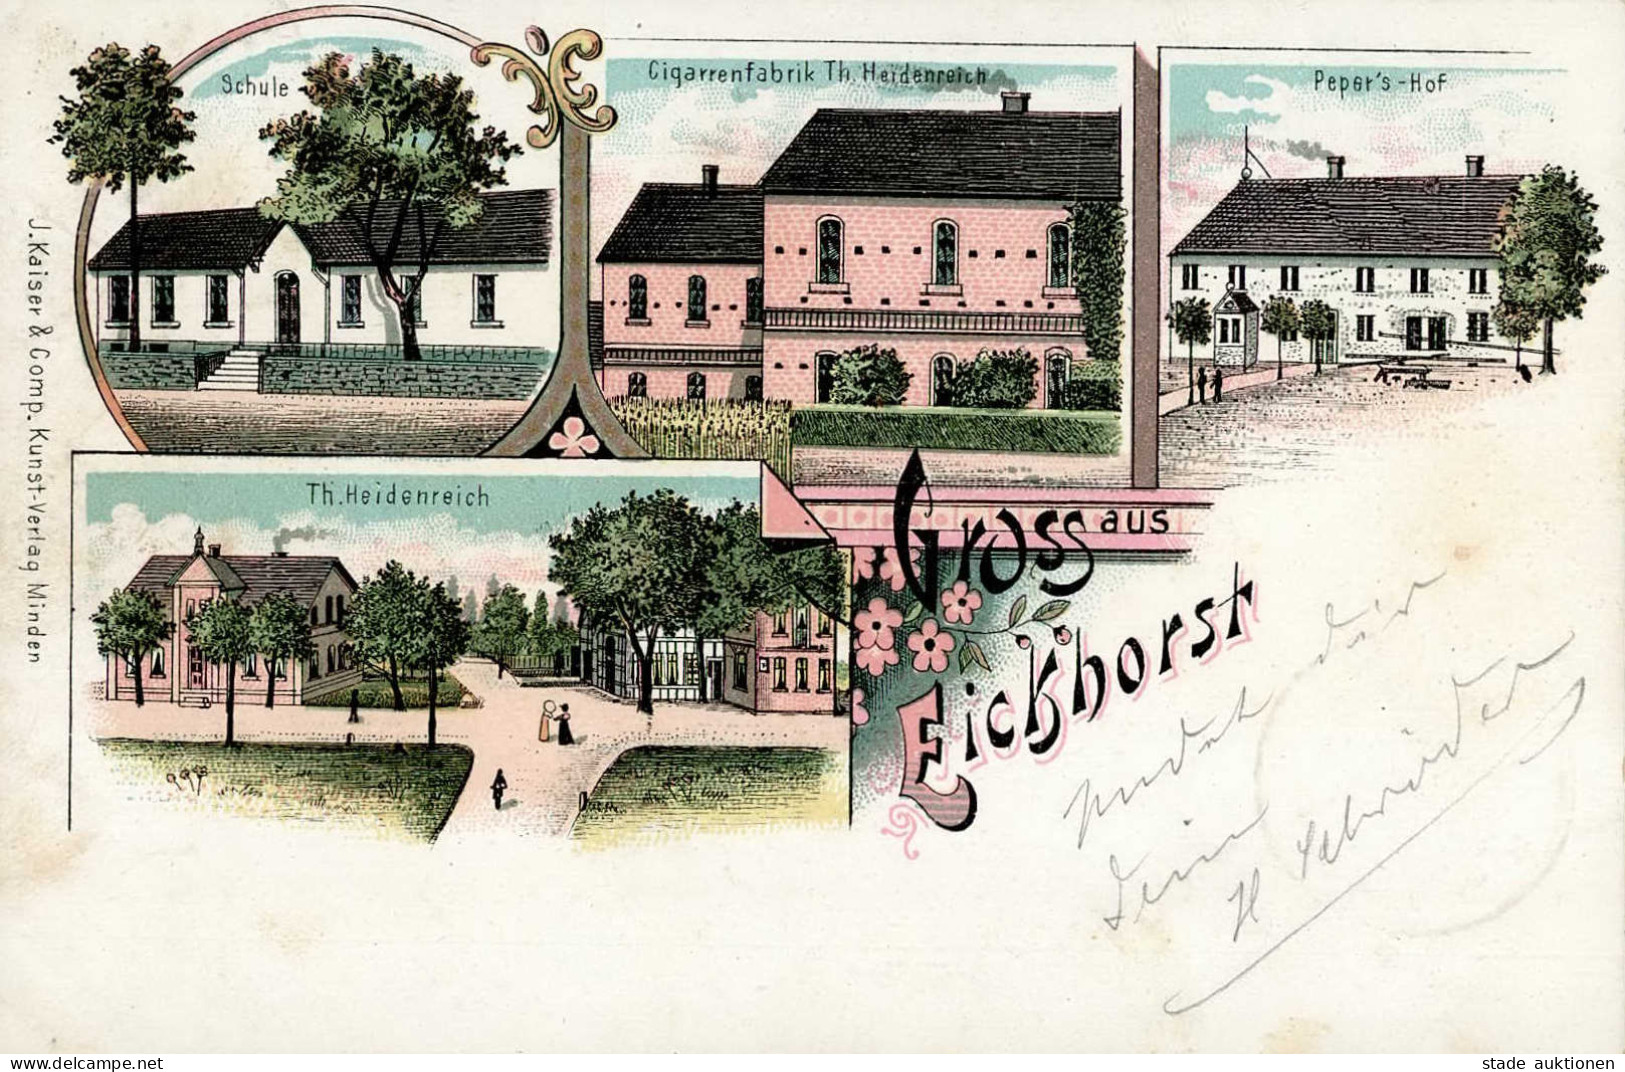 Schule
Cigarrenfabrik Th. Heidenreich
Peper's-Hof
J. Kaiser & Comp. Kunst-Verlag Minden
Th. Heidenreich
Gross aus
Eickhorst
sendet dir
dein
H Schröder
www.delcampe.net
stade auktionen